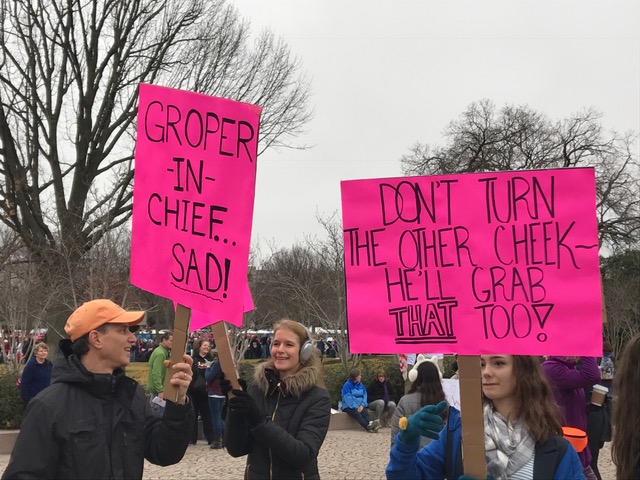 GROPER
-IN-
CHIEF...
SAD!
DON'T TURN
THE OTHER CHEEK~
HE'LL GRAB
THAT TOO!